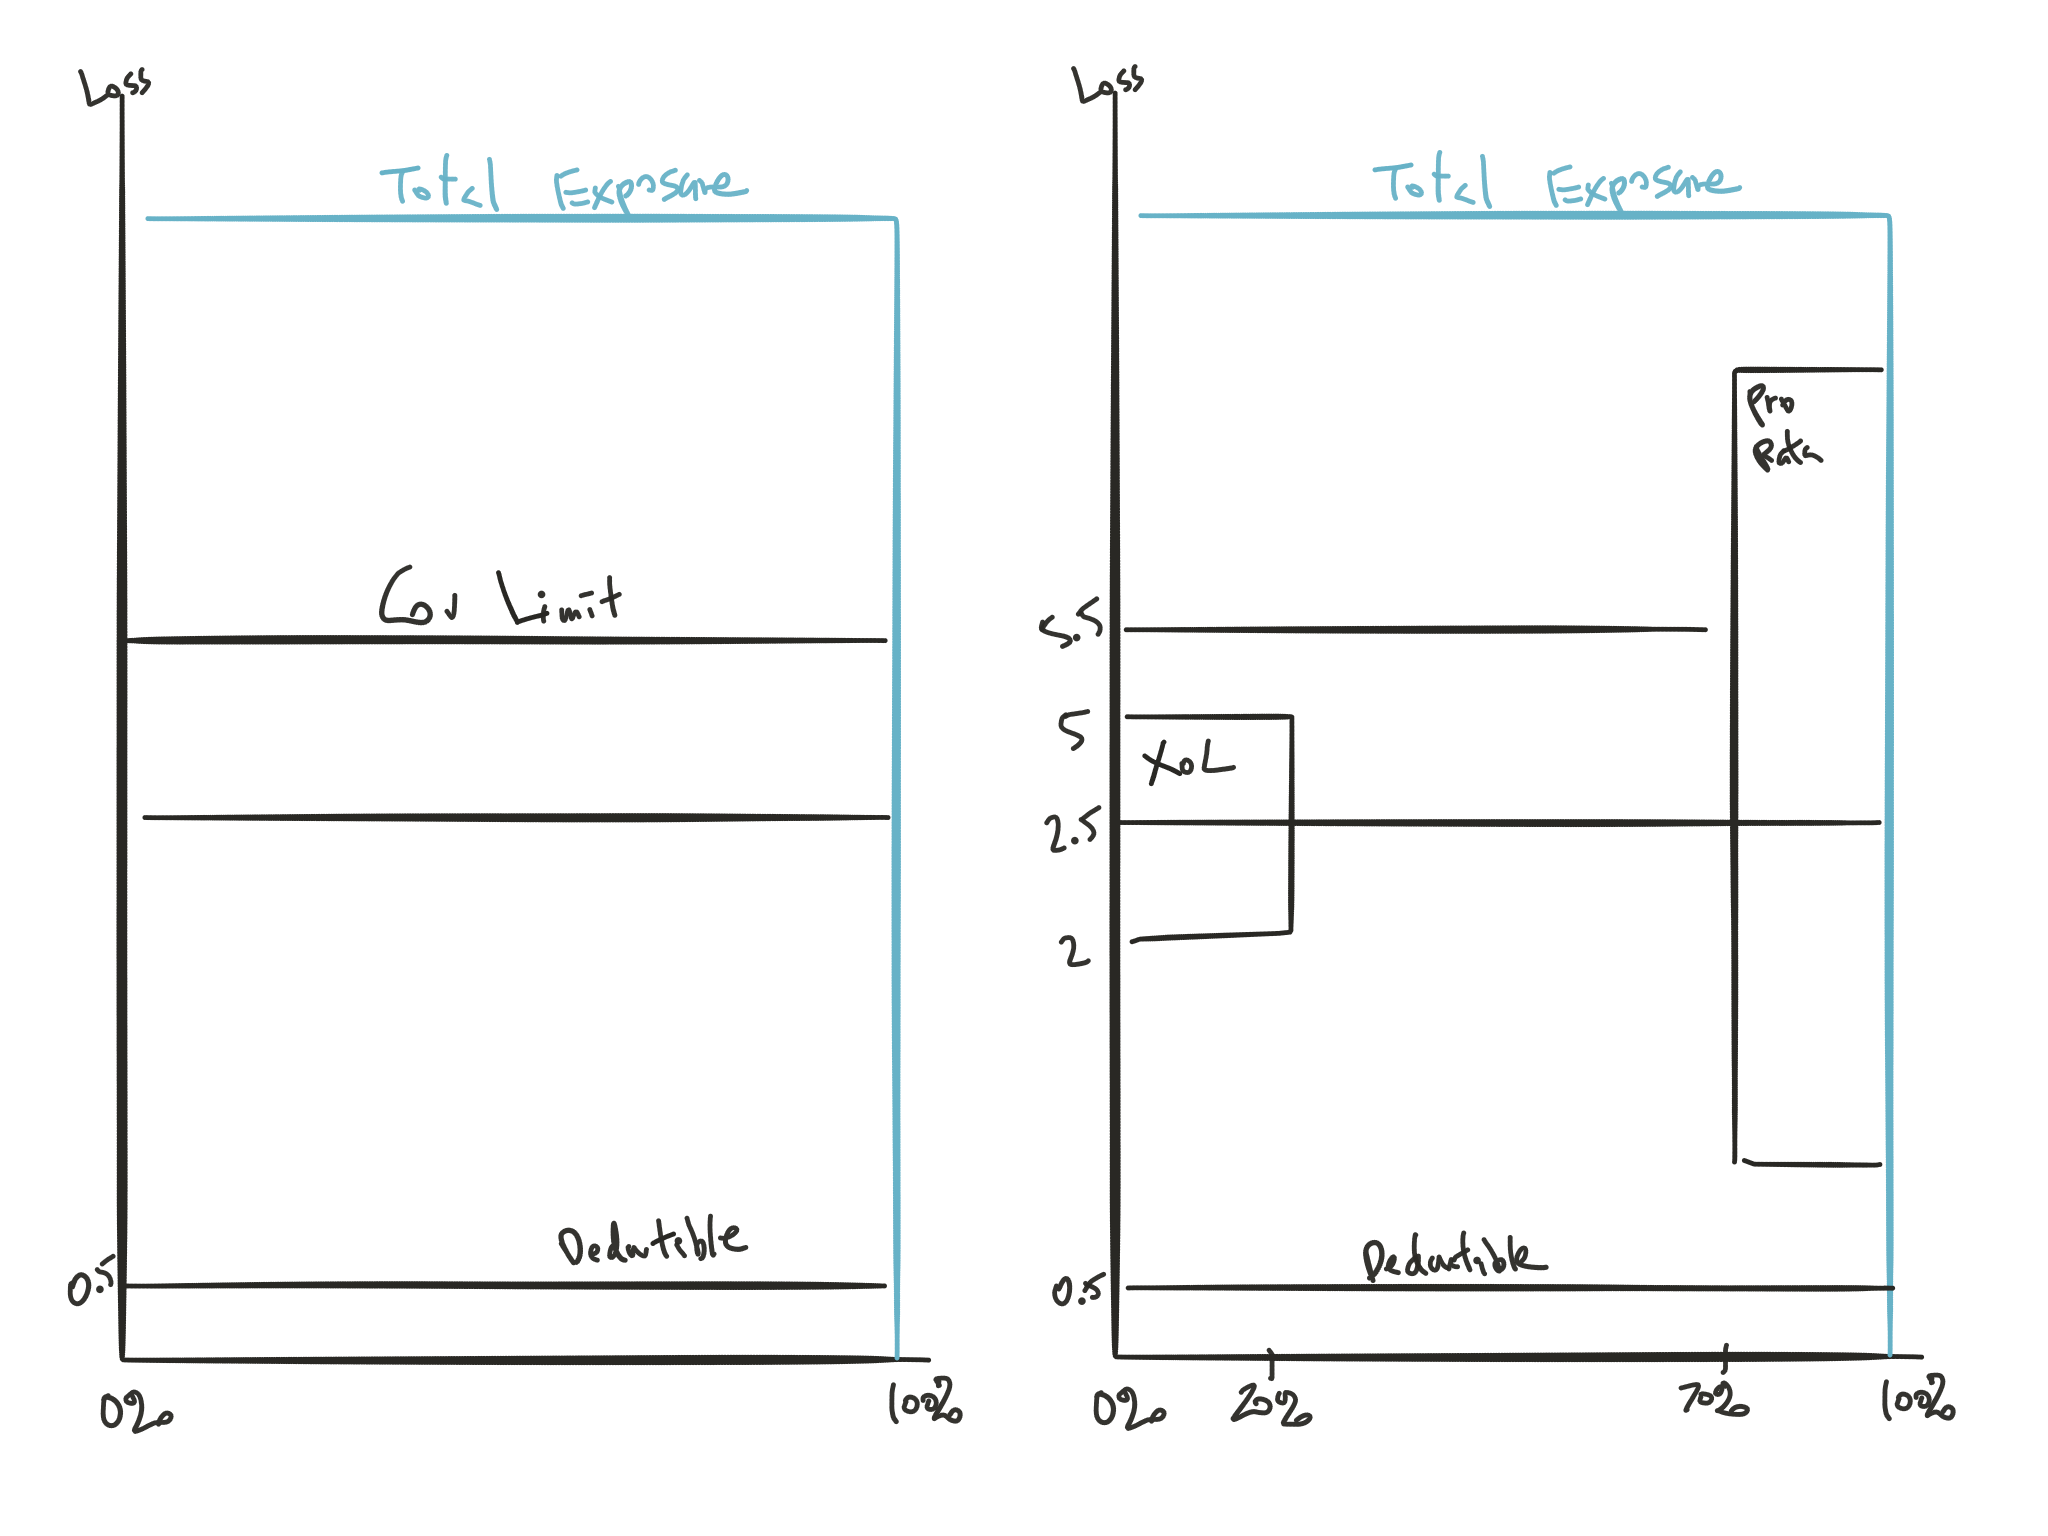 Loss
Total Exposure
Cov Limit
Deductible
0.5
0%
100%
Loss
Total Exposure
Pro
Rata
5.5
5
XoL
2.5
2
Deductible
0.5
0%
20%
70%
100%